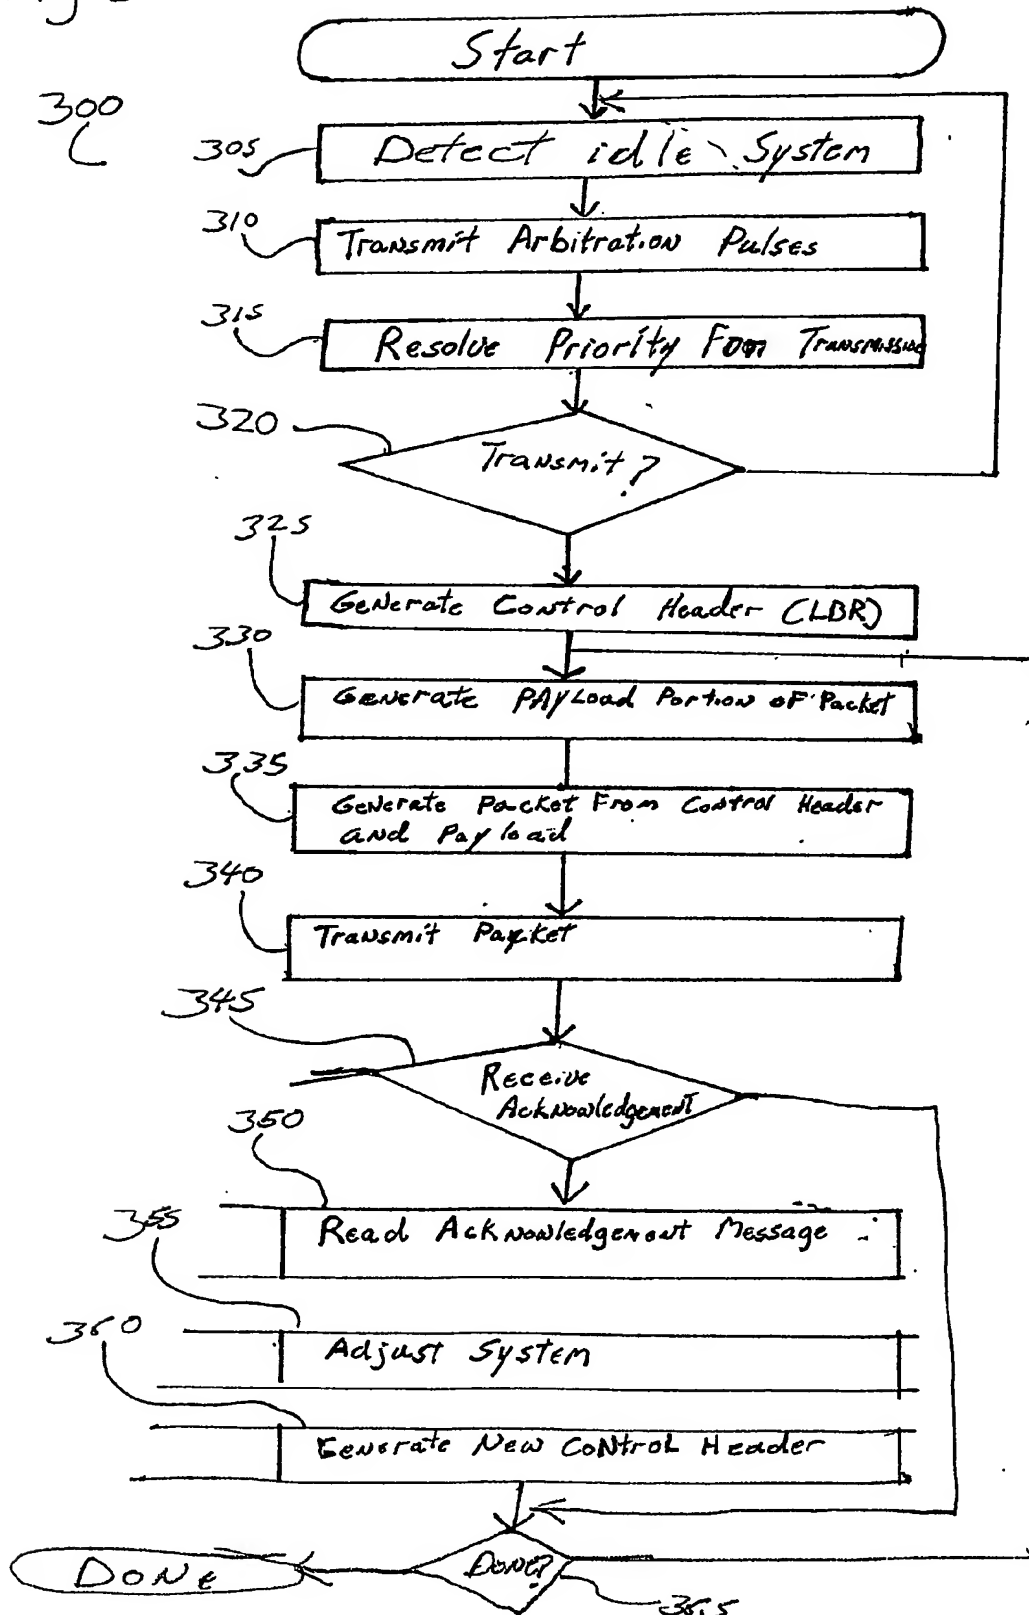 Start
300
305
Detect idle System
310
Transmit Arbitration Pulses
315
Resolve Priority From Transmission
320
Transmit?
325
Generate Control Header (LBR)
330
Generate PAYLoad Portion of Packet
335
Generate Packet From Control Header
and Payload
340
Transmit Packet
345
Receive
Acknowledgement
350
Read Acknowledgement Message
355
Adjust System
360
Generate New Control Header
Done?
DONE
365